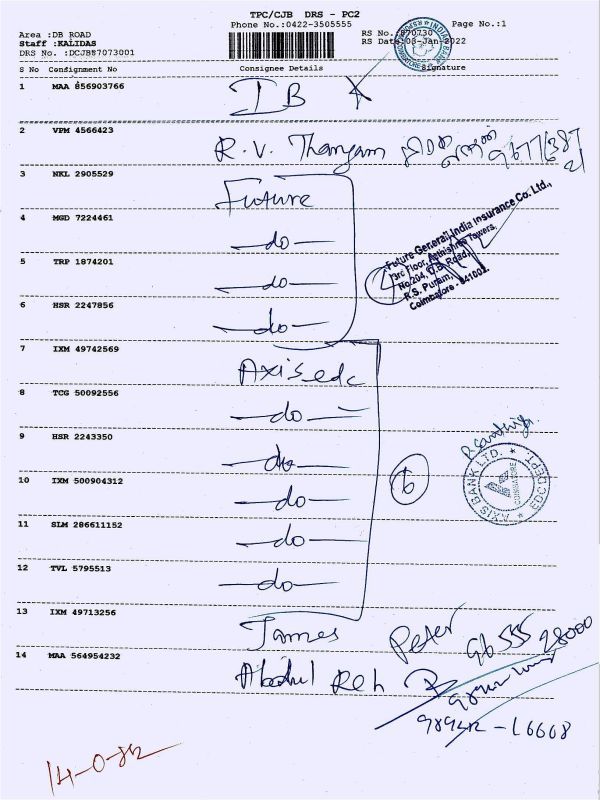 TPC/CJB DRS - PC2
Phone No.:0422-3505555
Page No.:1
Area :DB ROAD
RS No.:870730
Staff :KALIDAS
RS Date:08-Jan-2022
DRS No. :DCJB87073001
S No Consignment No Consignee Details Signature
1 MAA 856903766 IB
2 VPM 4566423 R.V. Thangam
3 NKL 2905529 Future
4 MGD 7224461 -do-
5 TRP 1874201 -do-
6 HSR 2247856 -do-
Future Generali India Insurance Co. Ltd.,
3rd Floor, Towers,
No.204, D.B. Road,
R.S. Puram,
Coimbatore - 641002.
7 IXM 49742569 Axis edc
8 TCG 50092556 -do-
9 HSR 2243350 -do-
10 IXM 500904312 -do-
11 SLM 286611152 -do-
12 TVL 5795513 -do-
6
AXIS BANK LTD. * EDC DEPT *
COIMBATORE
13 IXM 49713256 James Peter 96555 28000
14 MAA 564954232 Abdul Reh